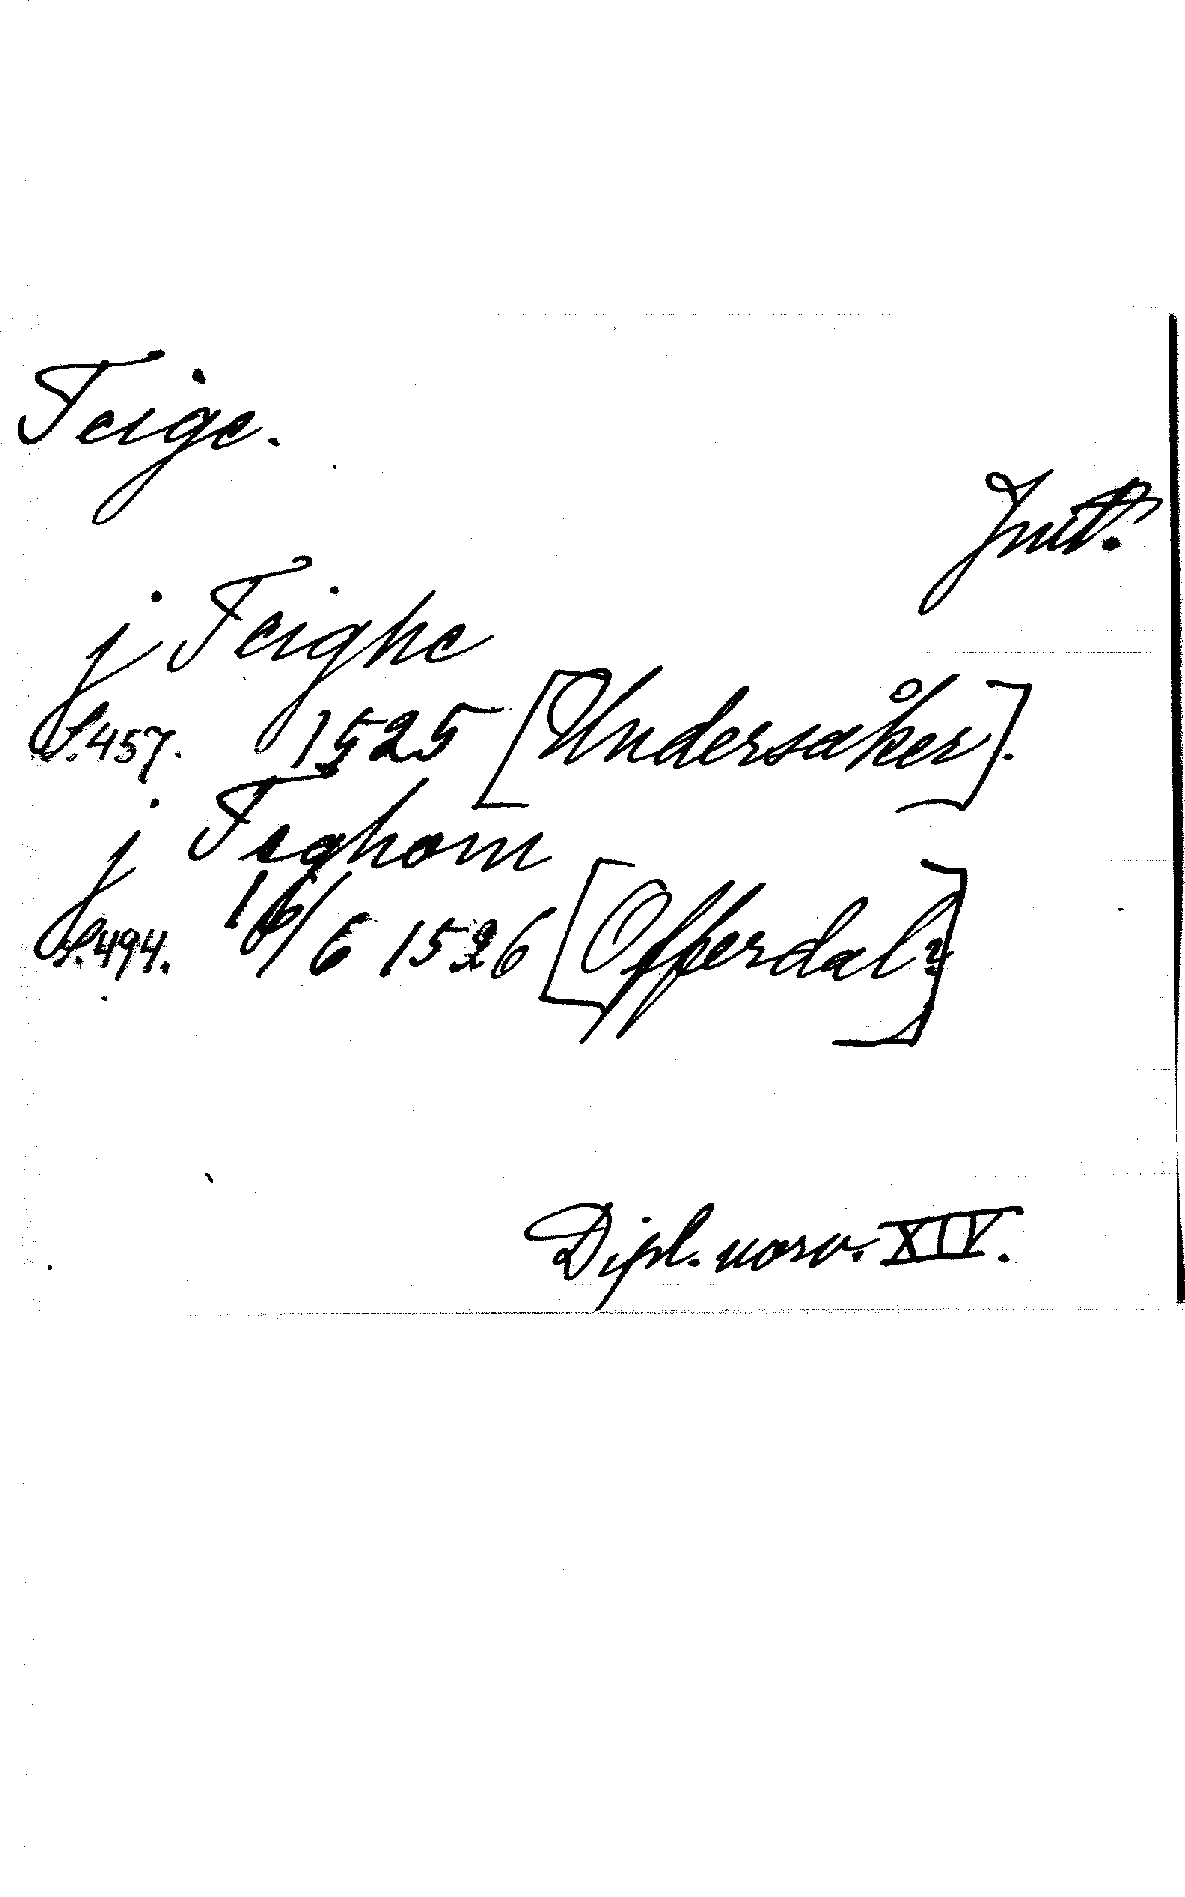 Teige.
Jmt.
j Teighe
S. 457. 1525 [Undersåker].
j Teghom
S. 494. 16/6 1526 [Offerdal?]
Dipl. norv. XIV.